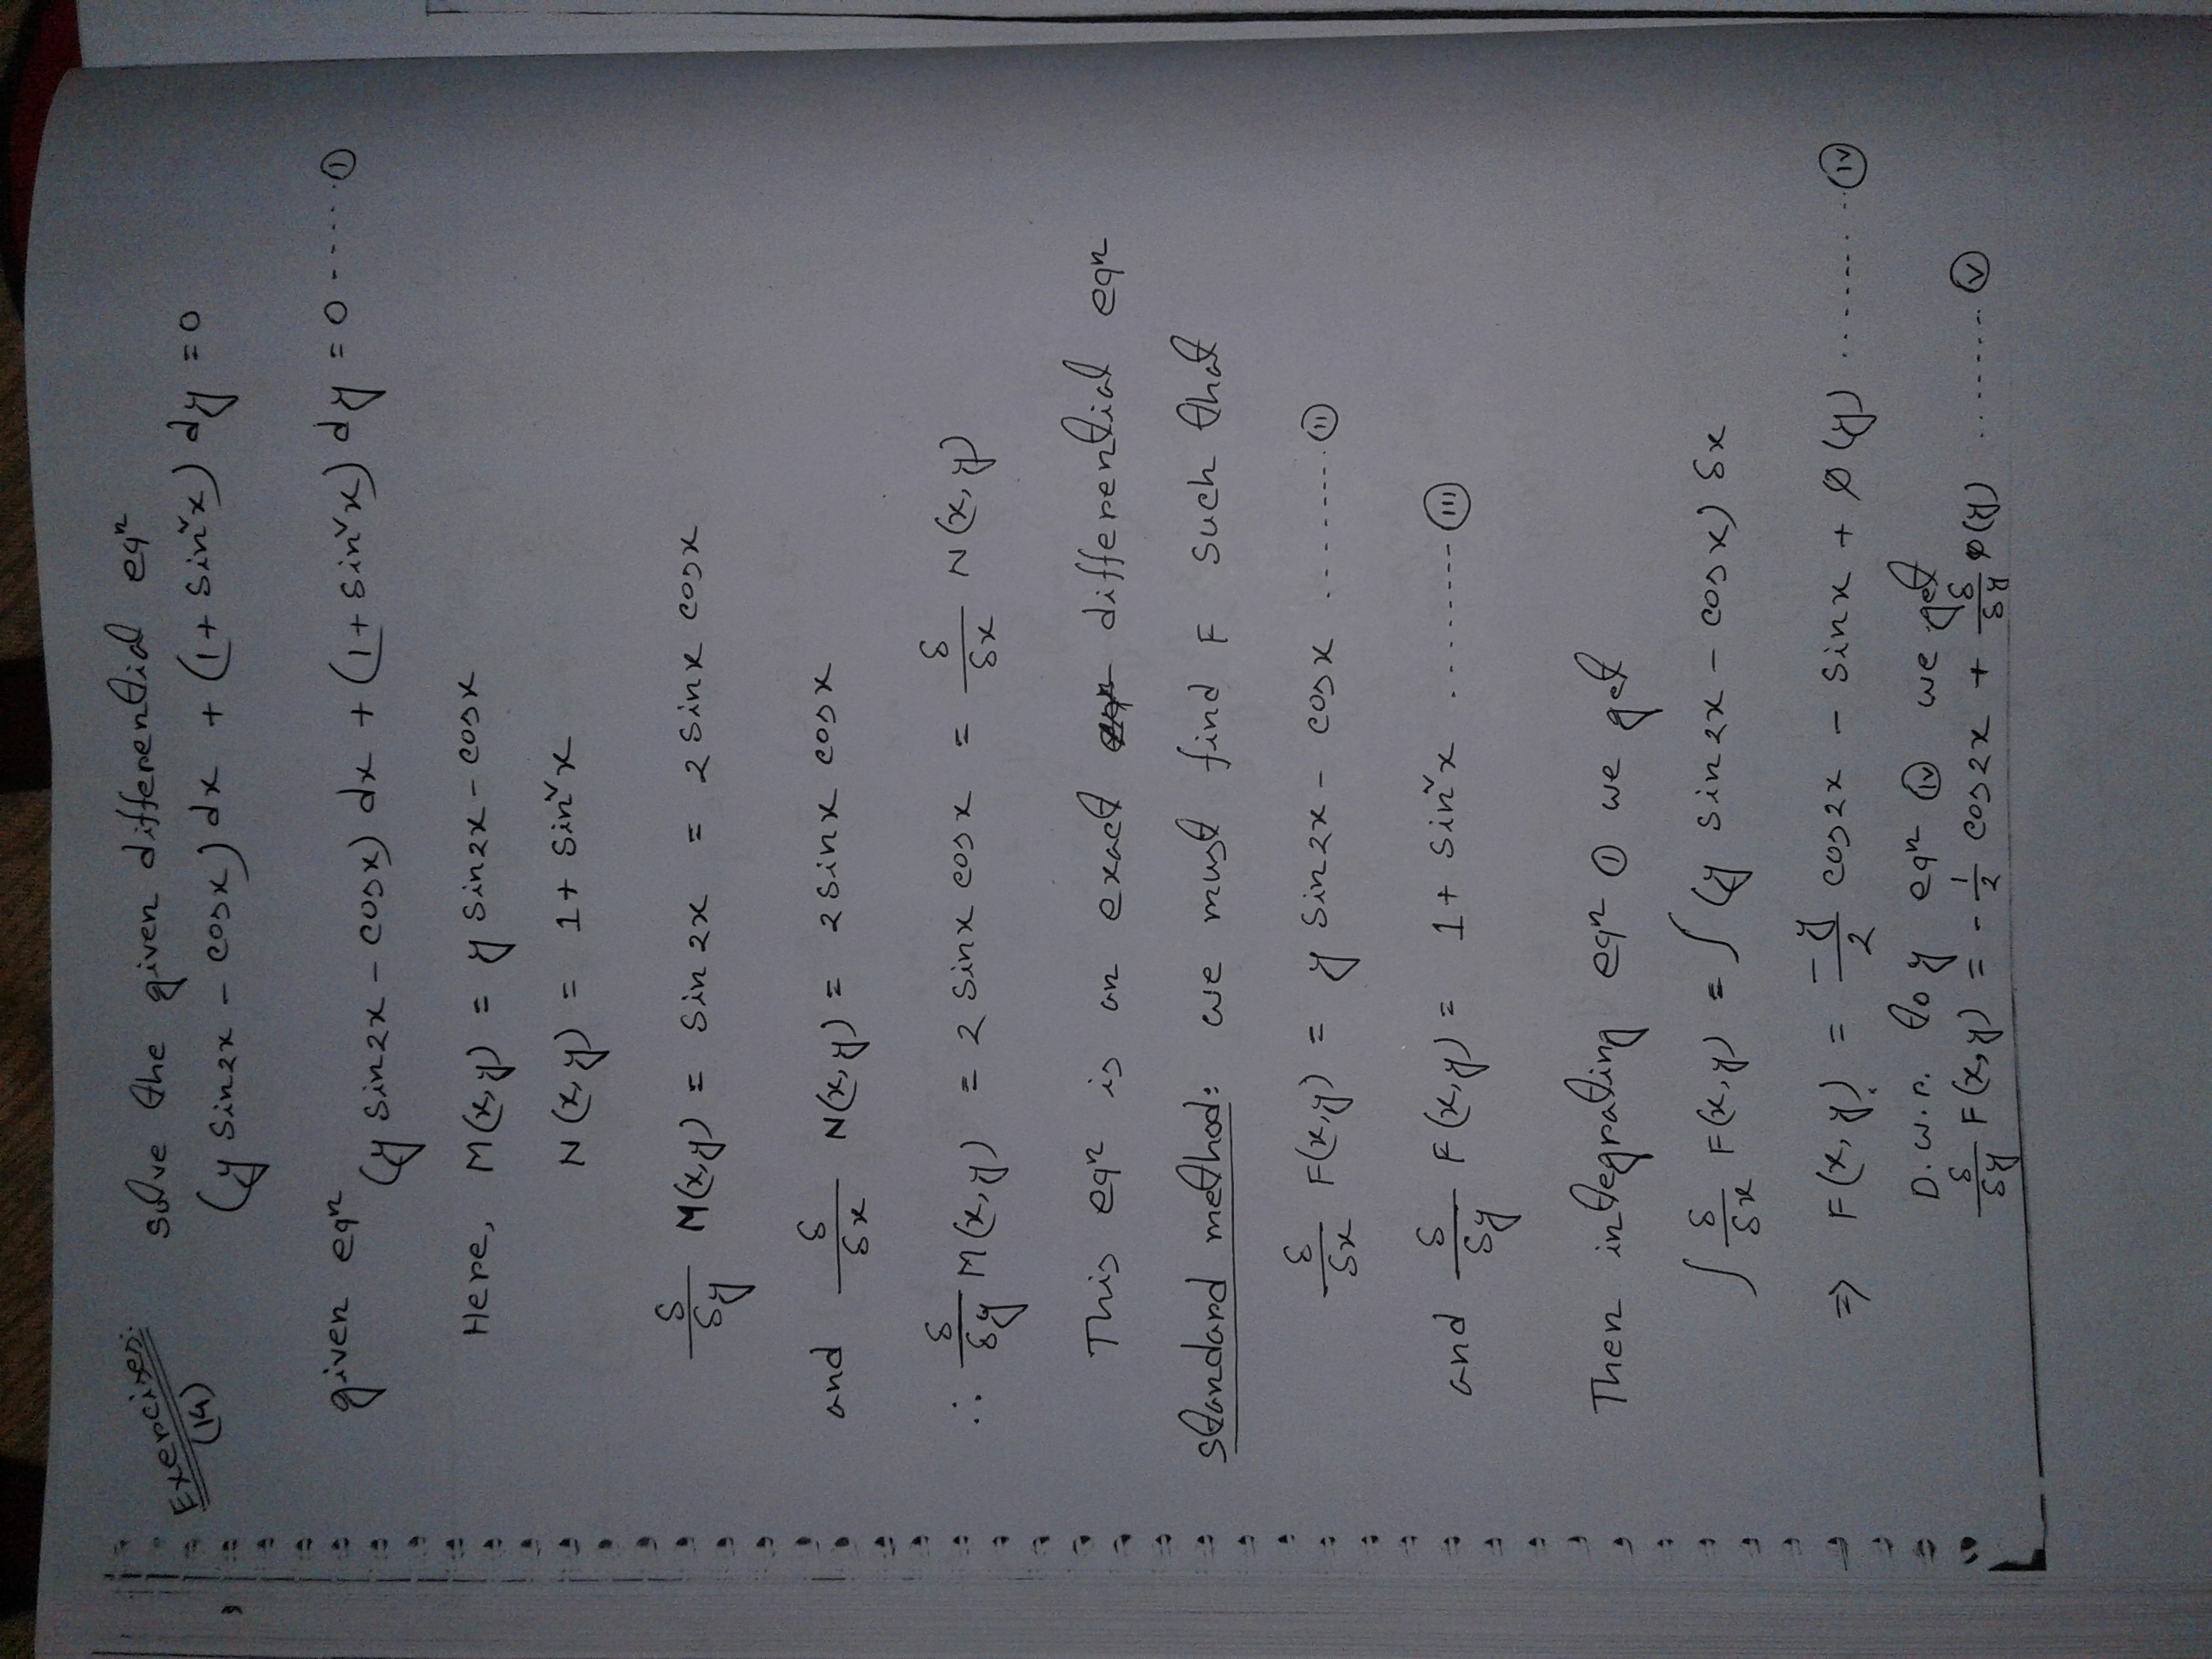 Exercises:
(14)
solve the given differential eqⁿ
(y sin2x - cosx) dx + (1 + sin²x) dy = 0
given eqⁿ
(y sin2x - cosx) dx + (1 + sin²x) dy = 0 ...... ①
Here, M(x,y) = y sin2x - cosx
N(x,y) = 1 + sin²x
δ/δy M(x,y) = sin 2x = 2 sinx cosx
and δ/δx N(x,y) = 2 sinx cosx
∴ δ/δy M(x,y) = 2 sinx cosx = δ/δx N(x,y)
This eqⁿ is an exact differential eqⁿ
standard method: we must find F such that
δ/δx F(x,y) = y sin2x - cosx ........ ⑪
and δ/δy F(x,y) = 1 + sin²x ......... (III)
Then integrating eqⁿ ① we get
∫ δ/δx F(x,y) = ∫ (y sin2x - cosx) δx
⇒ F(x,y) = -y/2 cos2x - sinx + φ(y) ......... (IV)
D.w.r. to y eqⁿ (IV) we get
δ/δy F(x,y) = -1/2 cos2x + δ/δy φ(y) ........ (V)